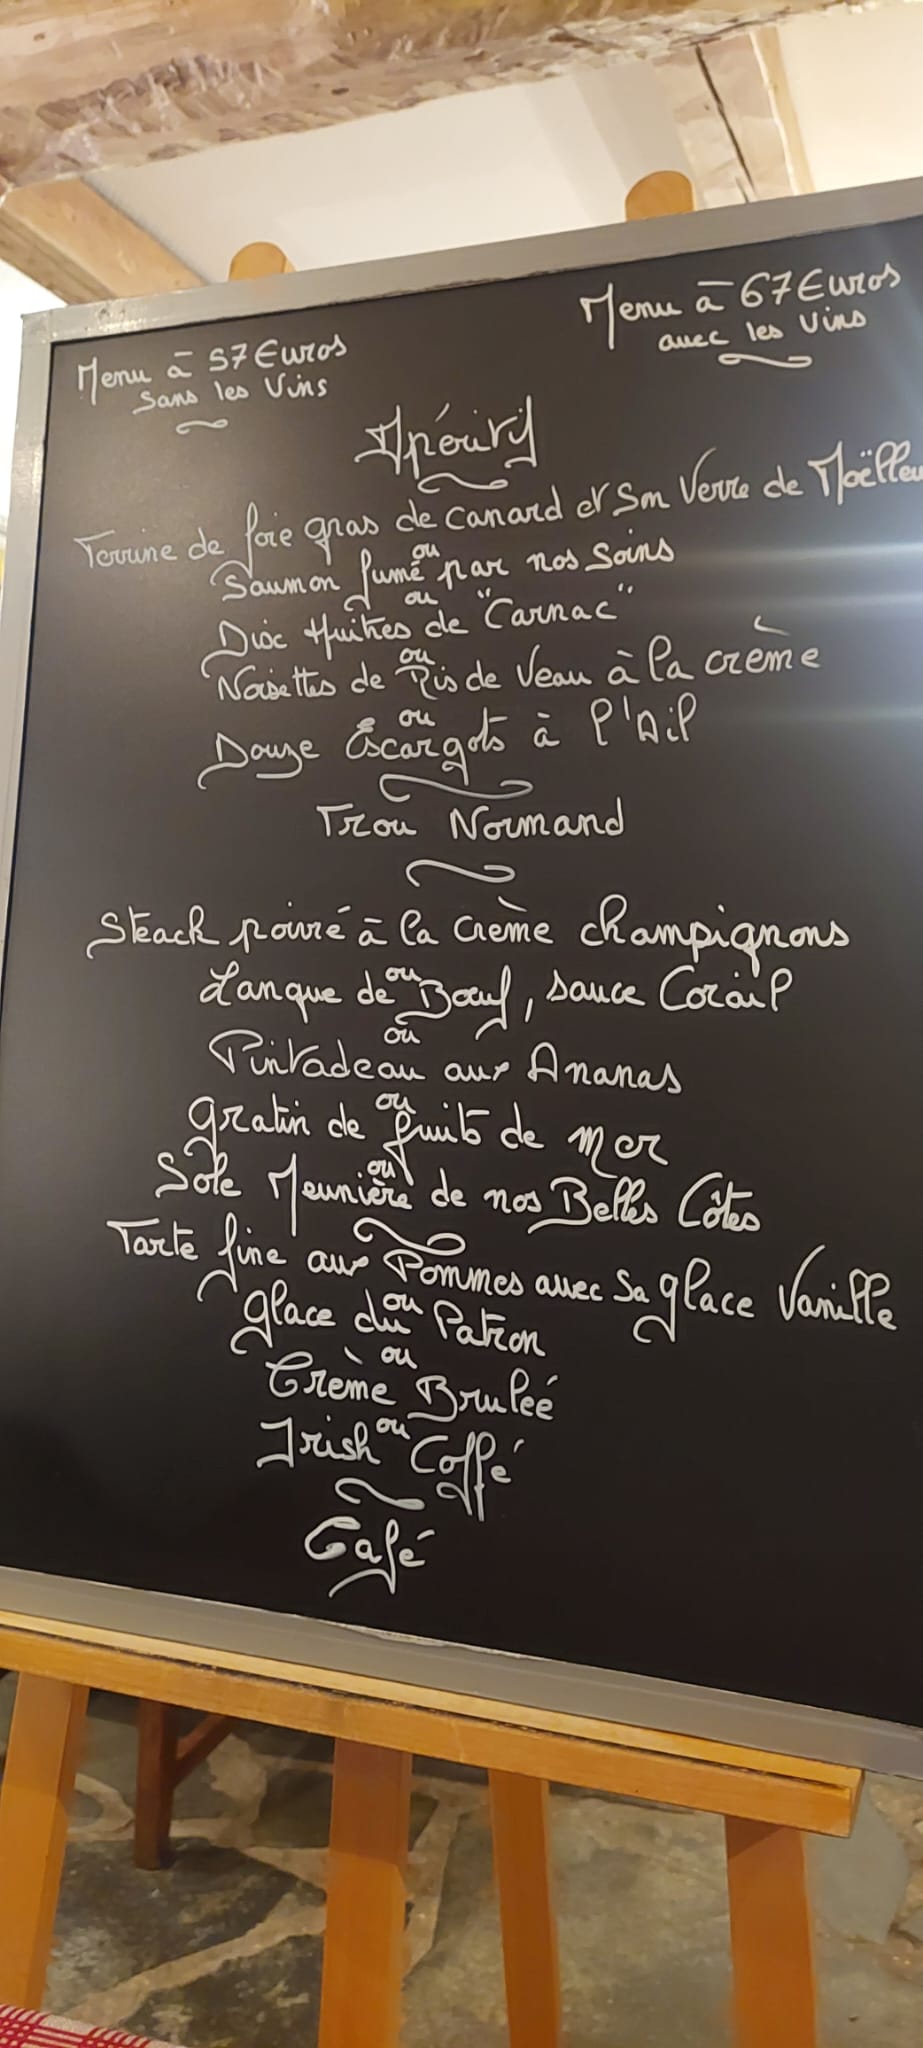 Menu à 57 Euros
sans les Vins
Menu à 67 Euros
avec les Vins
Apéritif
Terrine de foie gras de canard et Son Verre de Moëlleu
ou
Saumon fumé par nos Soins
ou
Dix Huîtres de "Carnac"
ou
Noisettes de Ris de Veau à la crème
ou
Douze Escargots à l'Ail
Trou Normand
Steack poivré à la Crème champignons
ou
Langue de Bœuf, sauce Corail
ou
Pintadeau aux Ananas
ou
Gratin de fruits de mer
ou
Sole Meunière de nos Belles Côtes
Tarte fine aux Pommes avec Sa glace Vanille
ou
Glace du Patron
ou
Crème Bruleé
ou
Irish Coffé
Café